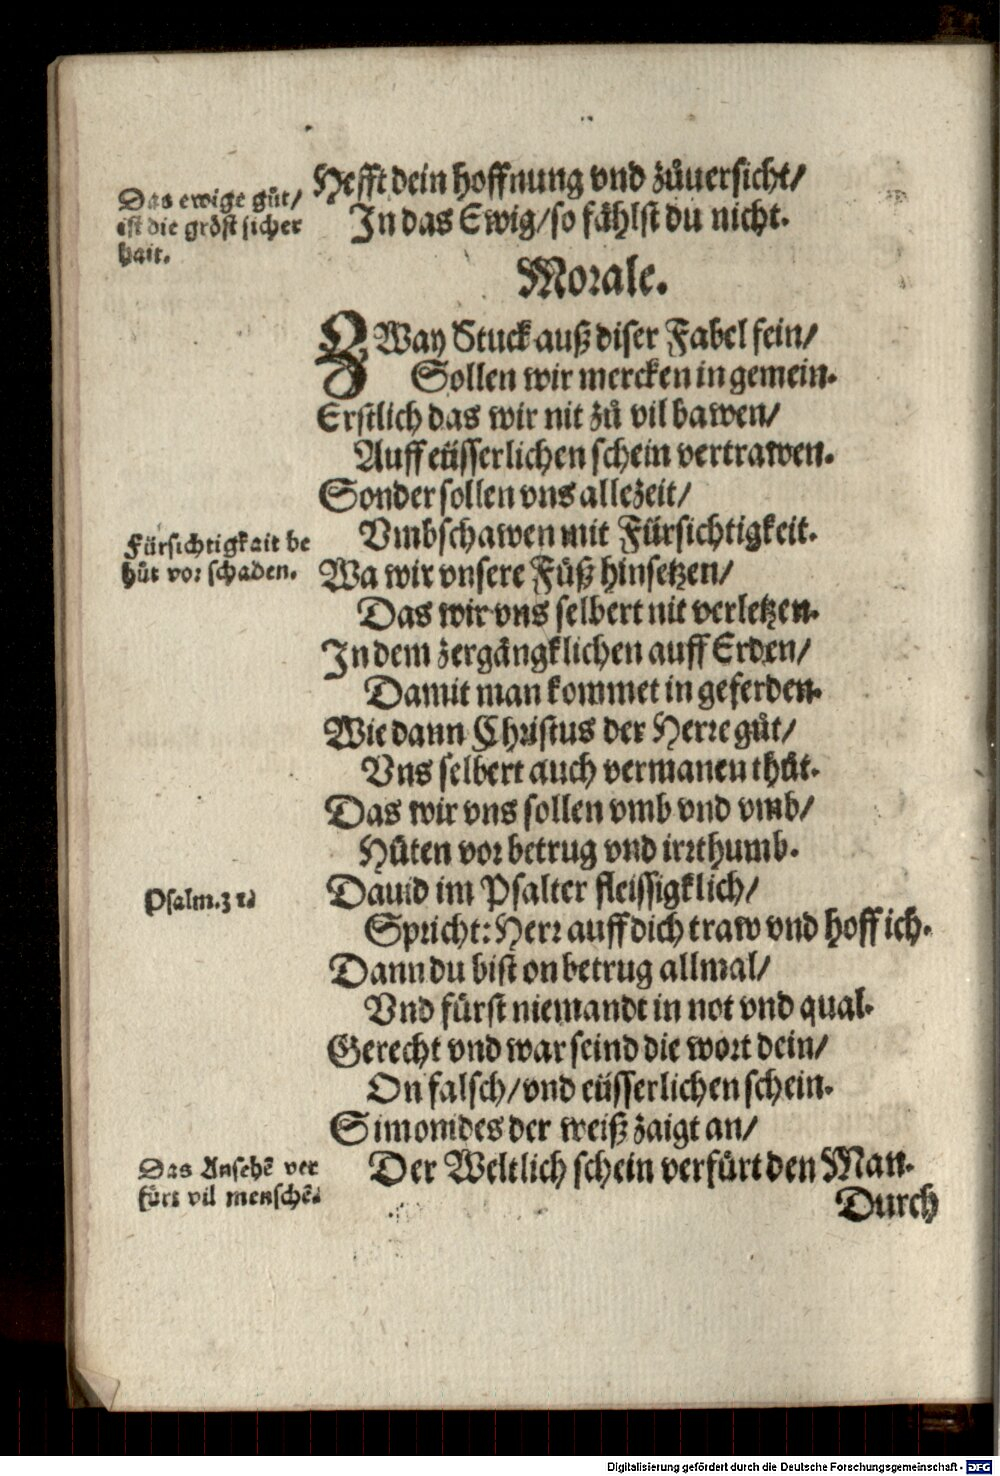 Hefft dein hoffnung vnd zůuersicht/
Das ewige gůt/
ist die gröst sicher
hait.
In das Ewig/ so fählst du nicht.
Morale.
ZWay Stuck auß diser Fabel fein/
Sollen wir mercken in gemein.
Erstlich das wir nit zů vil bawen/
Auff eüsserlichen schein vertrawen.
Sonder sollen vns allezeit/
Vmbschawen mit Fürsichtigkeit.
Fürsichtigkait be
hůt vor schaden.
Wa wir vnsere Füß hinsetzen/
Das wir vns selbert nit verletzen.
In dem zergängklichen auff Erden/
Damit man kommet in geferden.
Wie dann Christus der Herre gůt/
Vns selbert auch vermanen thůt.
Das wir vns sollen vmb vnd vmb/
Hůten vor betrug vnd irrthumb.
Psalm.31.
Dauid im Psalter fleissigklich/
Spricht: Herr auff dich traw vnd hoff ich.
Dann du bist on betrug allmal/
Vnd fürst niemandt in not vnd qual.
Gerecht vnd war seind die wort dein/
On falsch/ vnd eüsserlichen schein.
Simonides der weiß zaigt an/
Das Ansehẽ ver
fürt vil menschẽ.
Der Weltlich schein verfürt den Man.
Durch
Digitalisierung gefördert durch die Deutsche Forschungsgemeinschaft - DFG